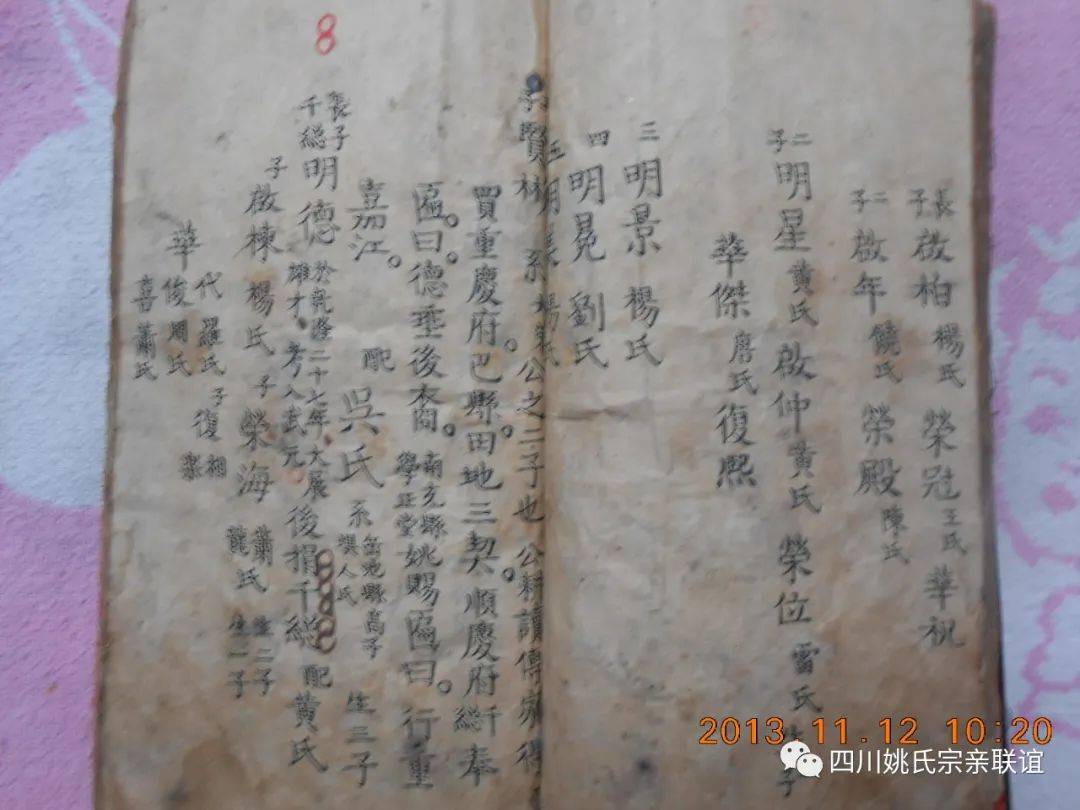 長子 啟柏 楊氏 榮冠 王氏 華祝
二子 啟年 饒氏 榮殿 陳氏
二子 明星 黃氏 啟仲 黃氏 榮位 雷氏 子
華傑 詹氏 復熙
三 明景 楊氏
四 明晃 劉氏
五 明
賢彬 公之二子也 公耕讀傳家得
買重慶府巴縣田地三契。順慶府 奉
匾。曰。德垂後裔。南充縣學正堂姚賜匾曰。行重
嘉江。 配 吳氏 系岳池縣高子 人氏 生三子
長子 千總 明德 於乾隆二十七年、大展雄才、考入武元。後捐千總 配黃氏
子 啟棟 楊氏 子 榮海 蕭氏 生二子 龍氏 生一子
代 羅氏 子 復 相
華俊 周氏
喜 蕭氏
8
2013.11.12 10:20
四川姚氏宗亲联谊